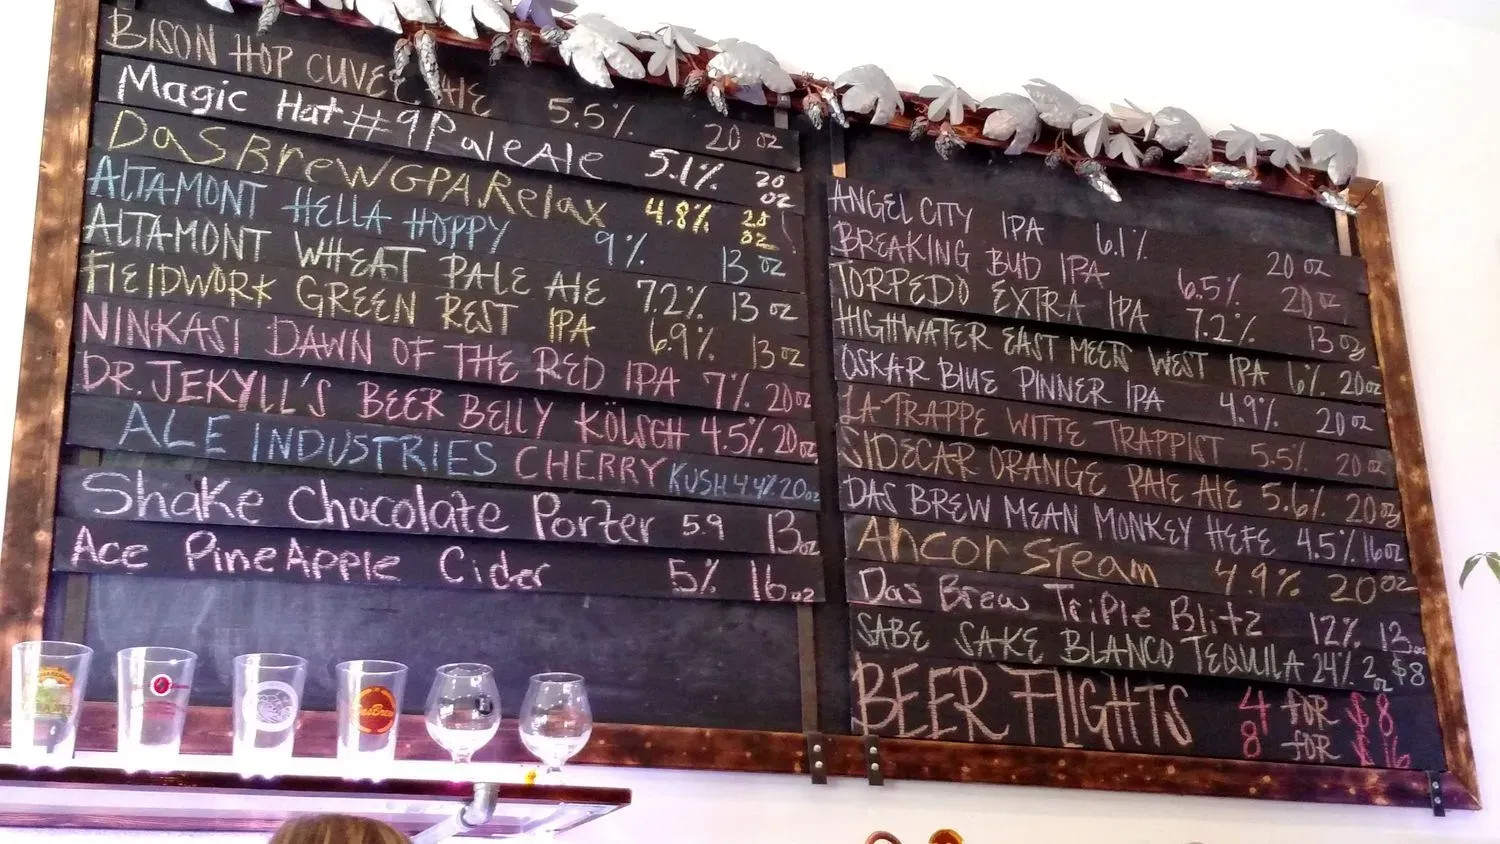 BISON HOP CUVEE ALE 5.5% 20 oz
Magic Hat #9 Pale Ale 5.1% 20 oz
Das Brew GPA Relax 4.8% 20 oz
ALTAMONT HELLA HOPPY 9% 13 oz
ALTAMONT WHEAT PALE ALE 7.2% 13 oz
FIELDWORK GREEN REST IPA 6.9% 13 oz
NINKASI DAWN OF THE RED IPA 7% 20oz
DR. JEKYLL'S BEER BELLY KÖLSCH 4.5% 20oz
ALE INDUSTRIES CHERRY KUSH 4.4% 20oz
Shake Chocolate Porter 5.9 13oz
Ace PineApple Cider 5% 16oz
ANGEL CITY IPA 6.1% 20 oz
BREAKING BUD IPA 6.5% 20 oz
TORPEDO EXTRA IPA 7.2% 13 oz
HIGHWATER EAST MEETS WEST IPA 6% 20oz
OSKAR BLUE PINNER IPA 4.9% 20oz
LA TRAPPE WITTE TRAPPIST 5.5% 20 oz
SIDECAR ORANGE PALE ALE 5.6% 20oz
DAS BREW MEAN MONKEY HEFE 4.5% 16oz
Ancor Steam 4.9% 20oz
Das Brew Triple Blitz 12% 13oz
SABE SAKE BLANCO TEQUILA 24% 2oz $8
BEER FLIGHTS 4 FOR $8
8 FOR $16
DasBrew